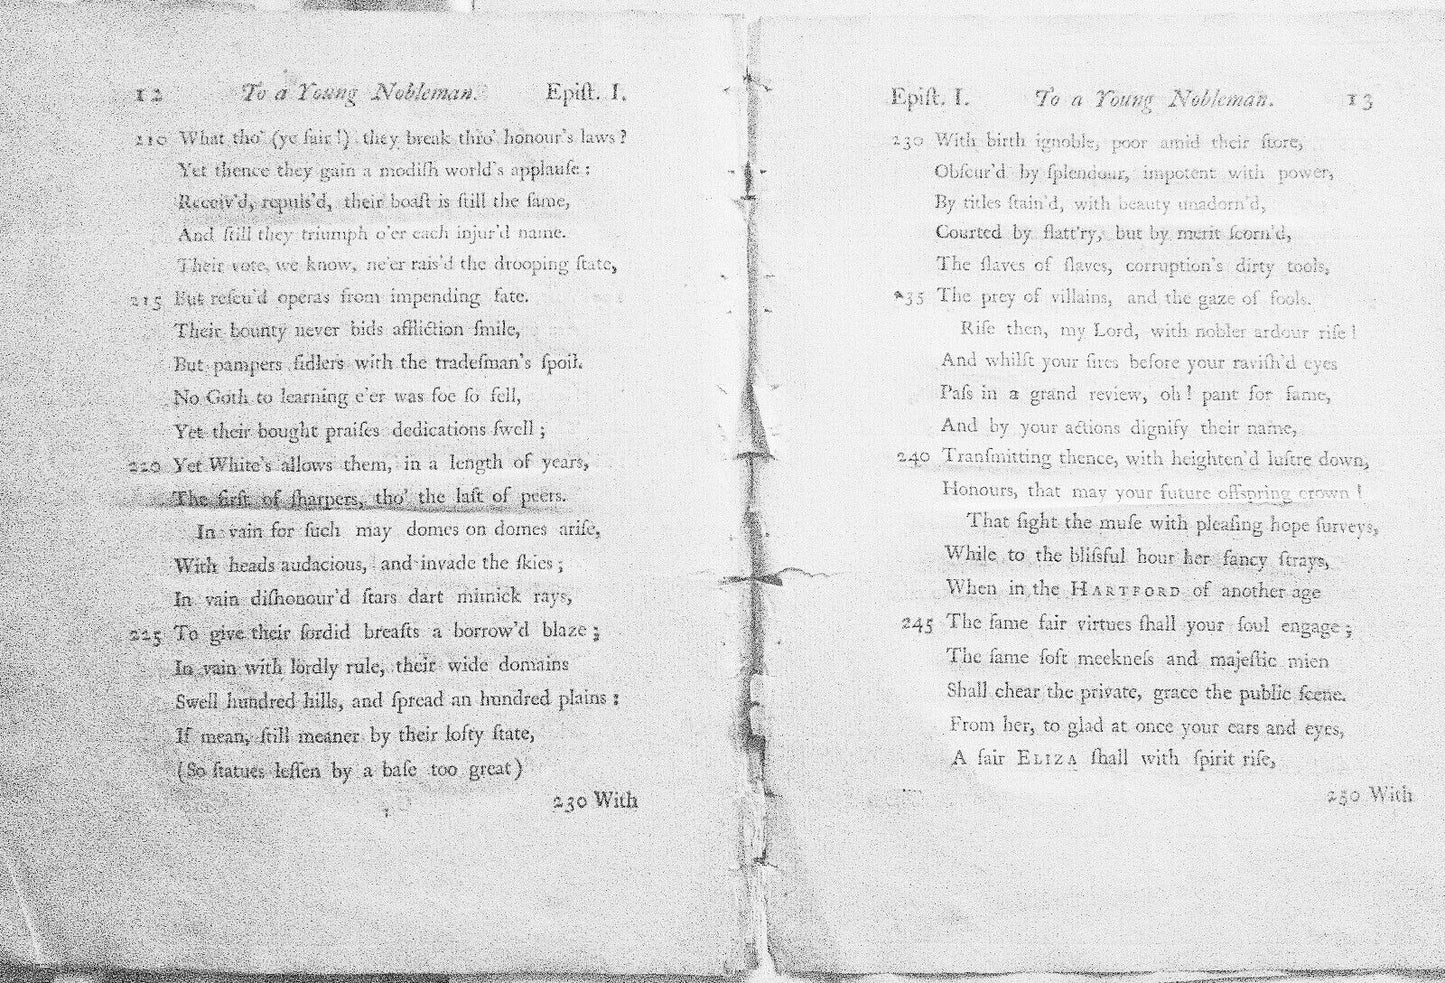 12 To a Young Nobleman. Epiſt. I.
210 What tho' (ye fair!) they break thro' honour's laws?
Yet thence they gain a modiſh world's applauſe:
Receiv'd, repuls'd, their boaſt is ſtill the ſame,
And ſtill they triumph o'er each injur'd name.
Their vote, we know, ne'er rais'd the drooping ſtate,
215 But reſcu'd operas from impending fate.
Their bounty never bids affliction ſmile,
But pampers fidlers with the tradeſman's ſpoil.
No Goth to learning e'er was foe ſo fell,
Yet their bought praiſes dedications ſwell;
220 Yet White's allows them, in a length of years,
The firſt of ſharpers, tho' the laſt of peers.
In vain for ſuch may domes on domes ariſe,
With heads audacious, and invade the ſkies;
In vain diſhonour'd ſtars dart mimick rays,
225 To give their ſordid breaſts a borrow'd blaze;
In vain with lordly rule, their wide domains
Swell hundred hills, and ſpread an hundred plains:
If mean, ſtill meaner by their lofty ſtate,
(So ſtatues leſſen by a baſe too great)
230 With
Epiſt. I. To a Young Nobleman. 13
230 With birth ignoble, poor amid their ſtore,
Obſcur'd by ſplendour, impotent with power,
By titles ſtain'd, with beauty unadorn'd,
Courted by flatt'ry, but by merit ſcorn'd,
The ſlaves of ſlaves, corruption's dirty tools,
235 The prey of villains, and the gaze of fools.
Riſe then, my Lord, with nobler ardour riſe!
And whilſt your ſires before your raviſh'd eyes
Paſs in a grand review, oh! pant for fame,
And by your actions dignify their name,
240 Tranſmitting thence, with heighten'd luſtre down,
Honours, that may your future offspring crown!
That ſight the muſe with pleaſing hope ſurveys,
While to the bliſsful hour her fancy ſtrays,
When in the HARTFORD of another age
245 The ſame fair virtues ſhall your ſoul engage;
The ſame ſoft meekneſs and majeſtic mien
Shall chear the private, grace the public ſcene.
From her, to glad at once your ears and eyes,
A fair ELIZA ſhall with ſpirit riſe,
250 With